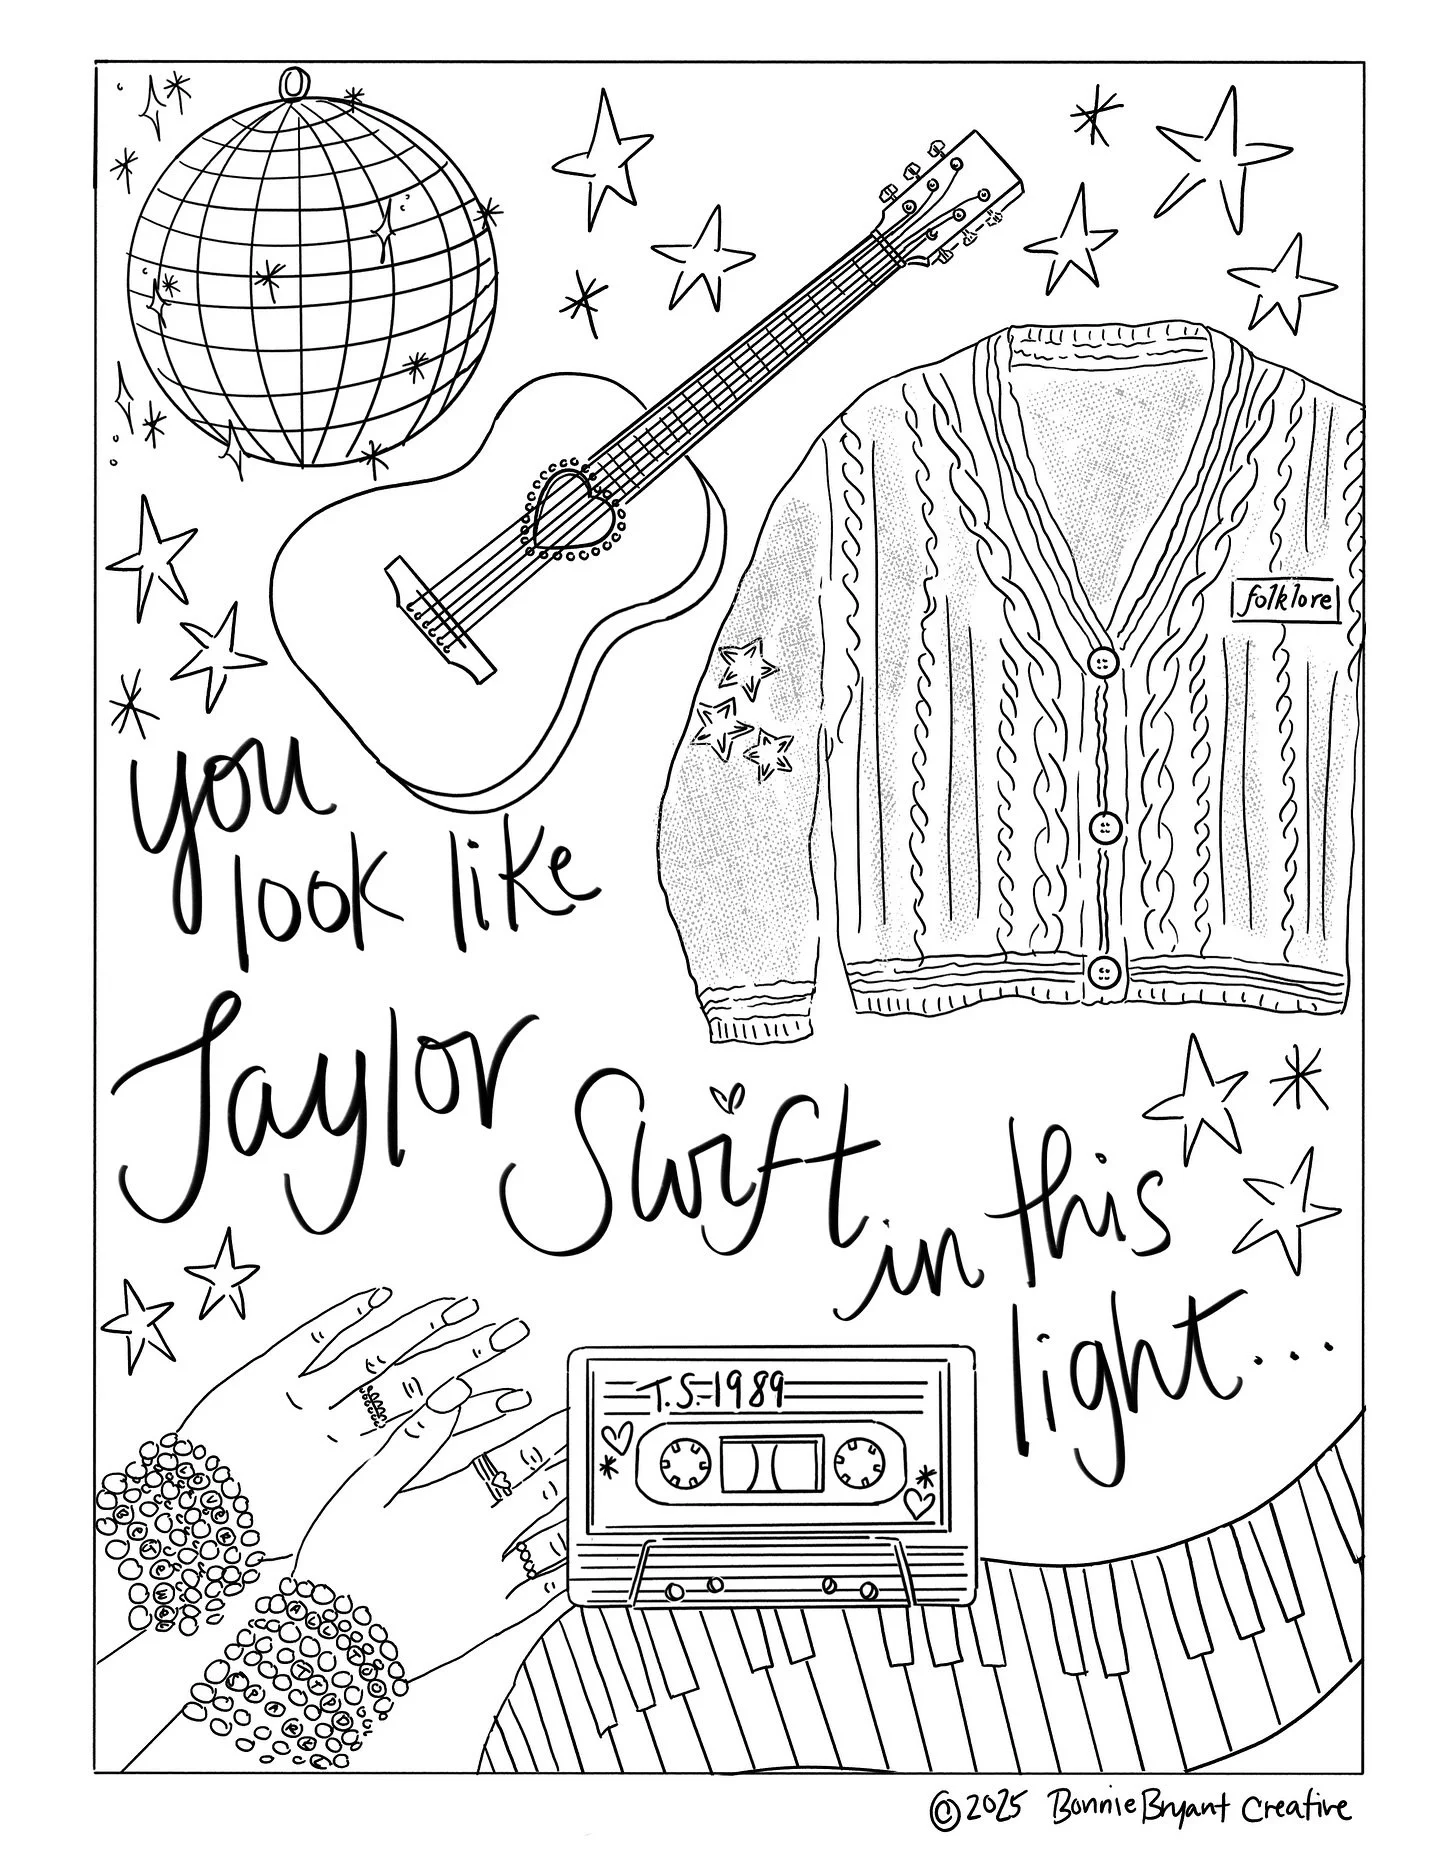 folklore
you
look like
Taylor Swift
in this
light...
T.S. 1989
©2025 BonnieBryant Creative